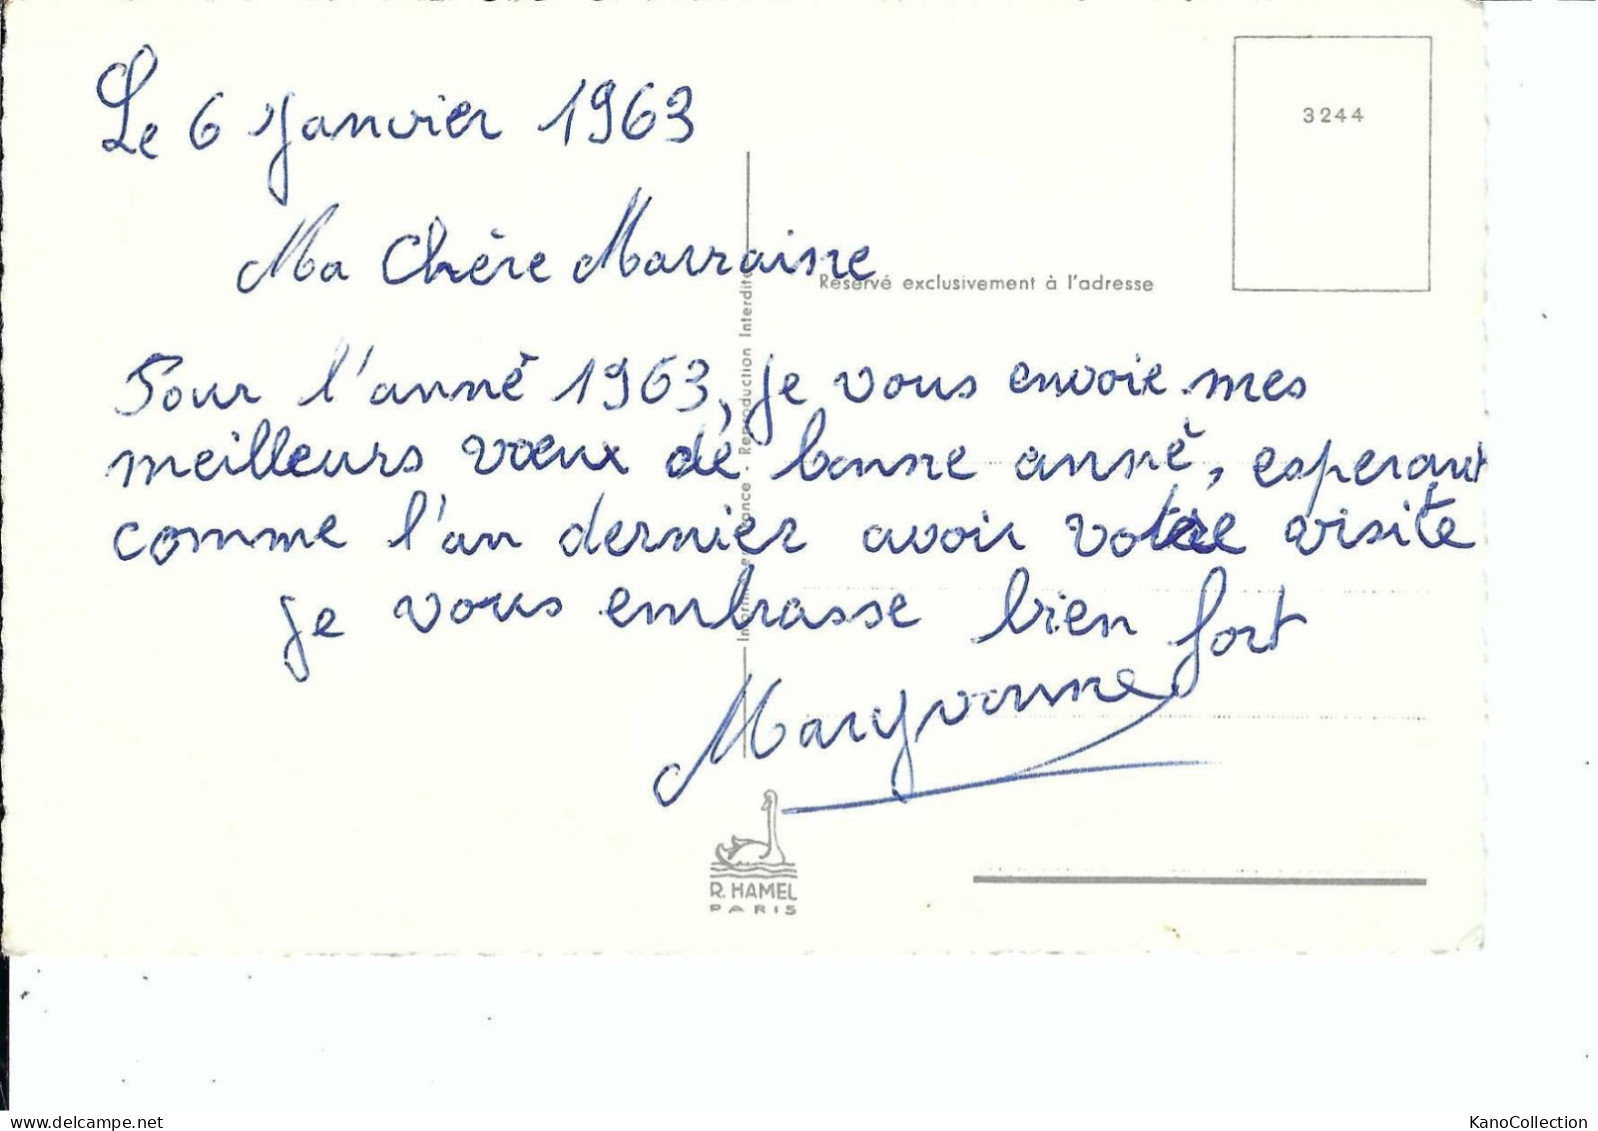 Le 6 Janvier 1963
3244
Ma Chère Marraine
Réservé exclusivement à l'adresse
Pour l'anné 1963, je vous envoie mes
meilleurs vœux de bonne anné, esperant
comme l'an dernier avoir votre visite
je vous embrasse bien fort
Maryvonne
Reproduction Interdite
R. HAMEL
PARIS
KanoCollection